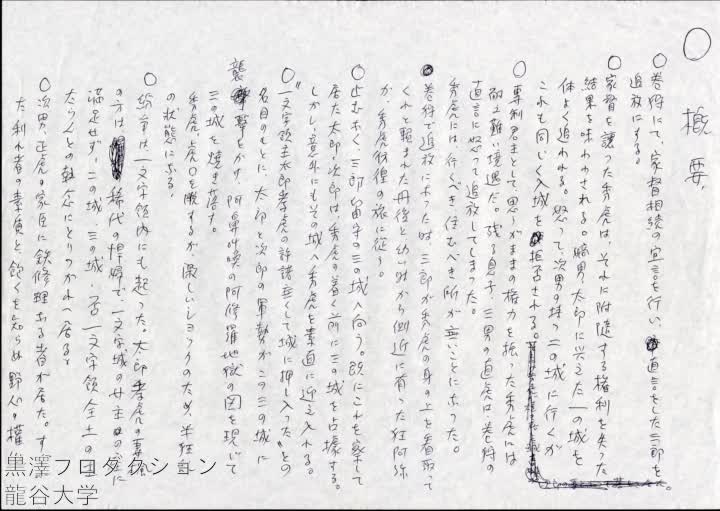 ○ 概要
○ 巻狩にて、家督相続の宣言を行い、直言をした三郎を
追放にする。
○ 家督を譲った秀虎は、それに附随する権利を失った
結果を味わわされる。嫡男、太郎に与えた一の城を
体よく追われる。怒って、次男の持つ二の城に行くが
これも同じく入城を拒否される。
○ 専制君主として、思うがままの権力を振った秀虎には
耐え難い境遇だ。残る息子、三男の直虎は、巻狩の
直言に怒って追放してしまった。
秀虎には、行くべき住むべき所が無いことになった。
巻狩で追放にあった時、三郎が秀虎の身の上を看取って
くれと頼まれた丹後と幼い時から側近に育った狂阿弥
が、秀虎彷徨の旅に従う。
○ 止むなく、三郎留守の三の城へ向う。既にこれを察して
居た太郎・次郎は、秀虎の着く前に三の城を占拠する。
しかし、意外にもその城へ秀虎を素直に迎え入れる。
○ "一文字領主太郎孝虎の許諾無くして城に押し入った"との
名目のもとに、太郎と次郎の軍勢がこの三の城に
襲撃をかけ、阿鼻叫喚の阿修羅地獄の図を現じて
三の城を焼き落す。
秀虎、虎口を脱するが、激しいショックのため、半狂乱
の状態になる。
○ 紛争は一文字領内にも起った。太郎孝虎の妻、楓
の方は、稀代の悍婦で、一文字城の女主のみに
満足せず、二の城、三の城、否一文字領全土の主
たらんとの執念にとりつかれて居る。
○ 次男、正虎の家臣に鉄修理なる者が居た。す
た利れ者の素質と、飽くを知らぬ野心の権
黒澤プロダクション
龍谷大学